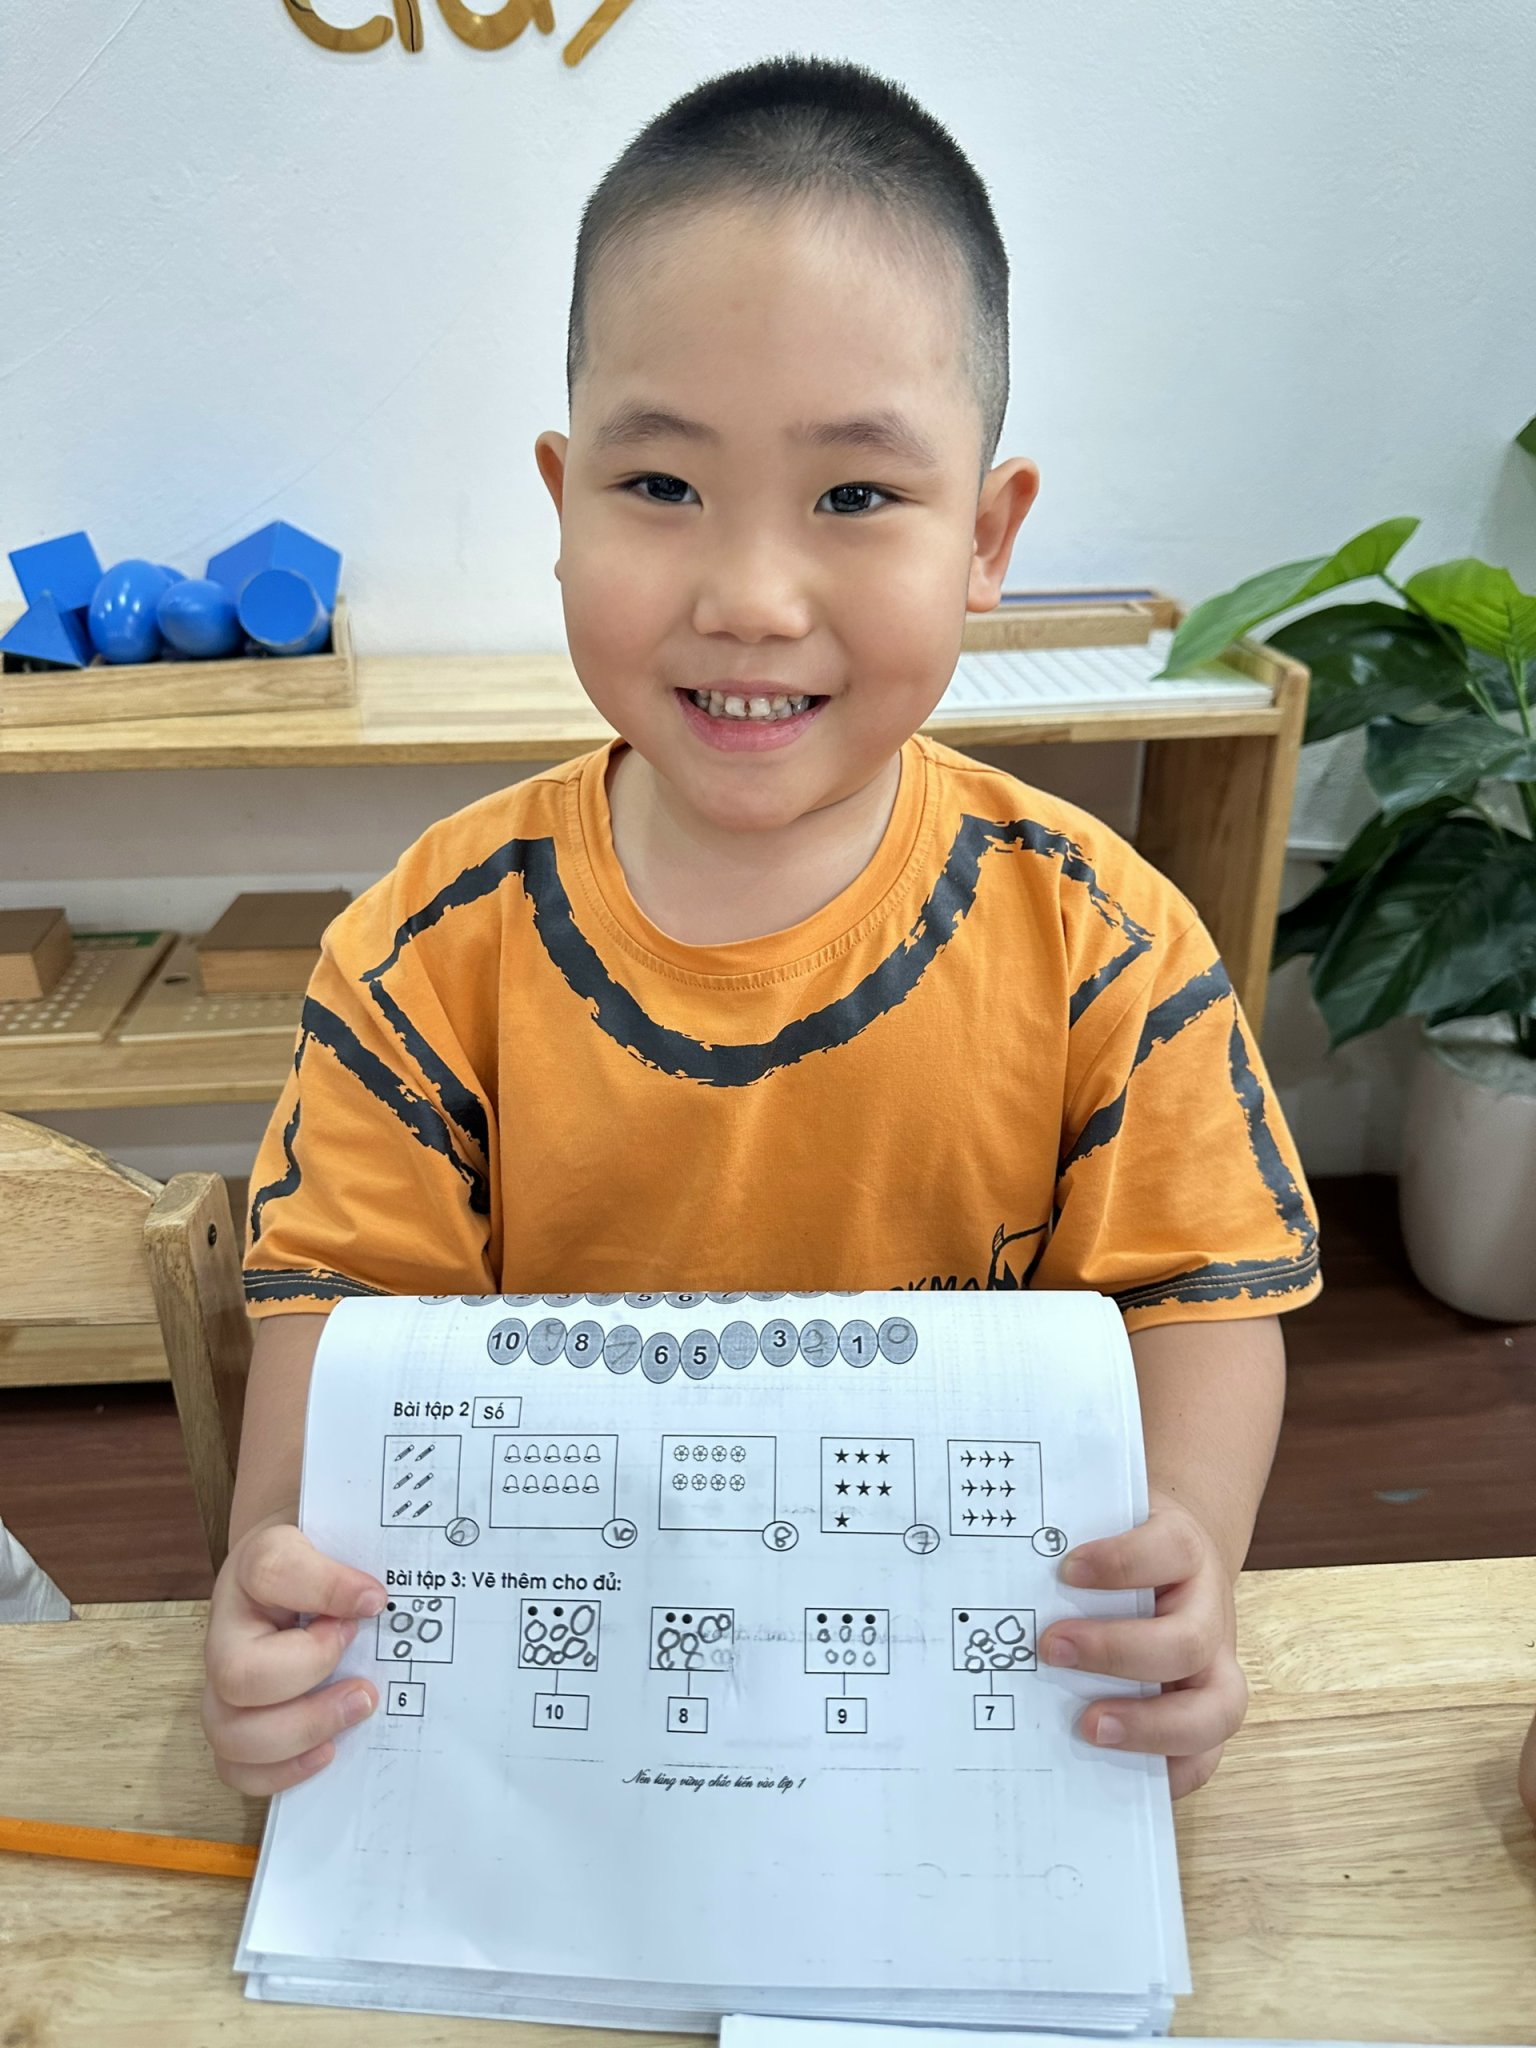 clay
5 6 7
10 9 8 7 6 5 3 2 1 0
Bài tập 2 Số
6 10 8 7 9
Bài tập 3: Vẽ thêm cho đủ:
6 10 8 9 7
Nền tảng vững chắc tiến vào lớp 1